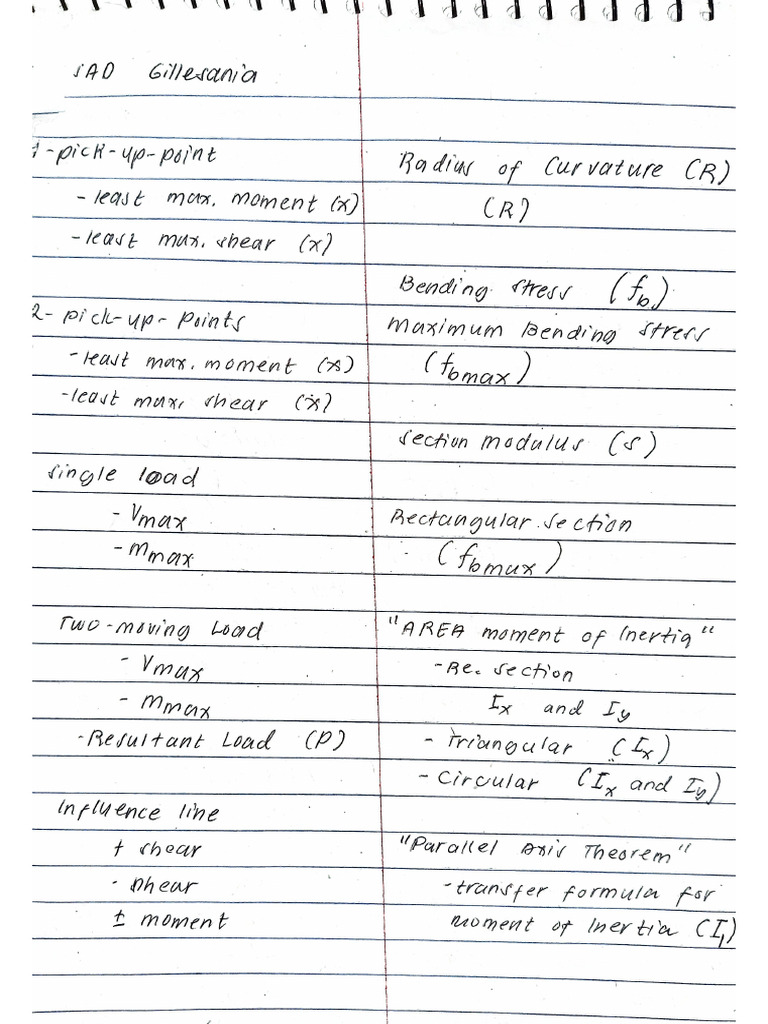 SAD Gillesania
1-pick-up-point
- least max. moment (x)
- least max. shear (x)
2- pick-up-points
- least max. moment (x)
- least max. shear (x)
single load
- Vmax
- Mmax
Two-moving Load
- Vmax
- Mmax
- Resultant Load (P)
Influence line
+ shear
- shear
± moment
Radius of Curvature (R)
(R)
Bending stress (fb)
maximum Bending stress
(fbmax)
section modulus (s)
Rectangular section
(fbmax)
"AREA moment of Inertia"
- Re. section
Ix and Iy
- Triangular (Ix)
- Circular (Ix and Iy)
"Parallel Axis Theorem"
- transfer formula for
moment of Inertia (I1)